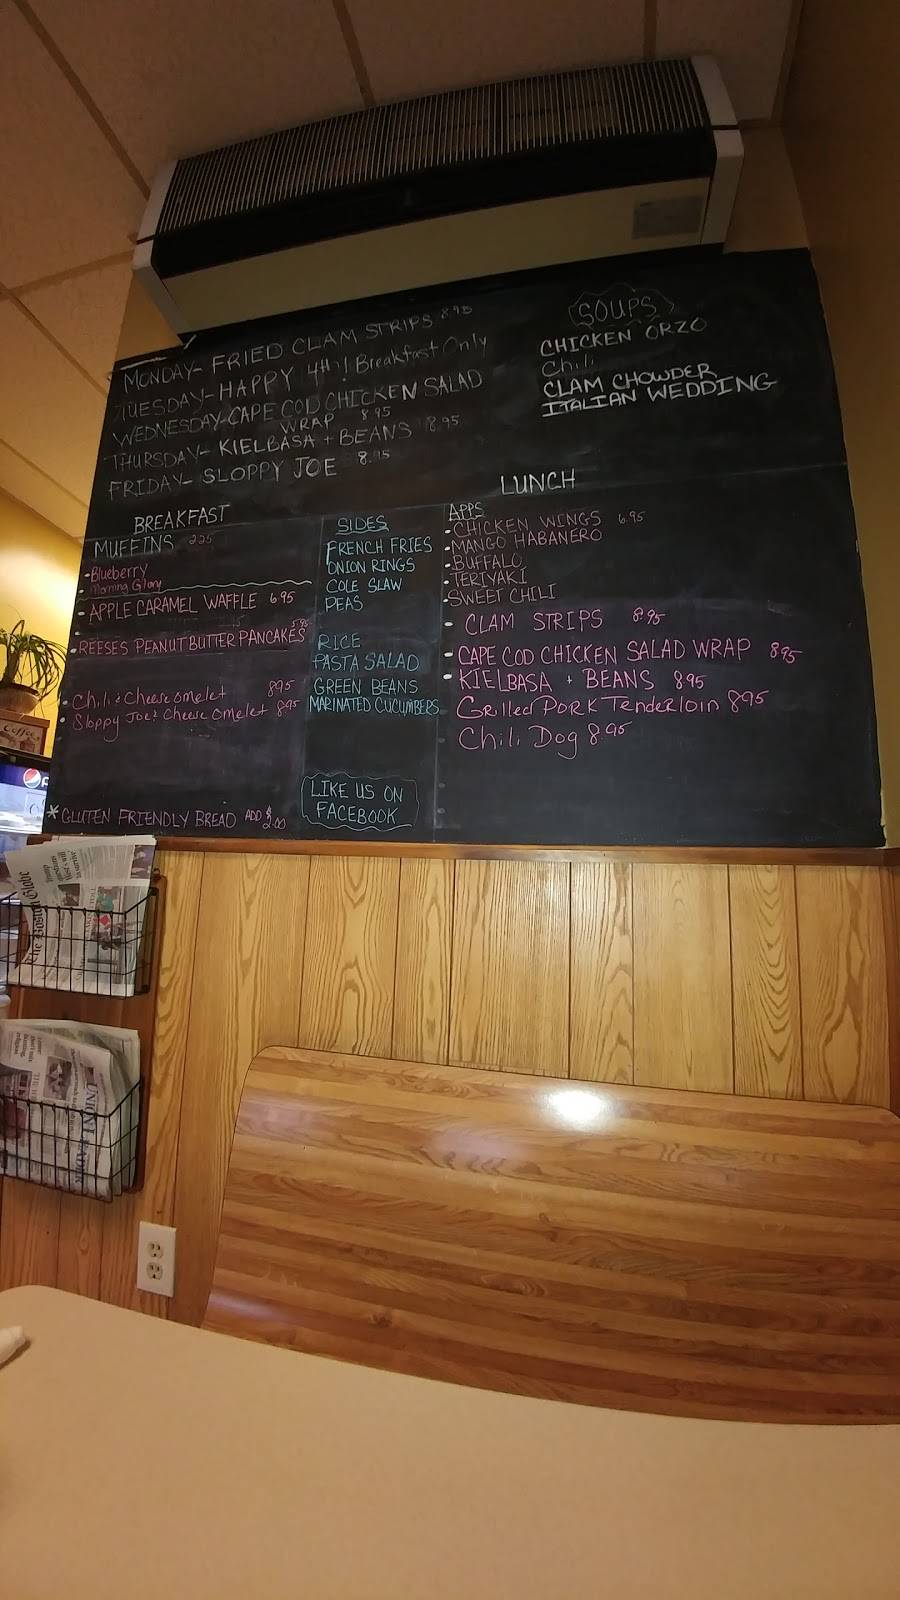 MONDAY- FRIED CLAM STRIPS 8.95
TUESDAY- HAPPY 4th! Breakfast Only
WEDNESDAY- CAPE COD CHICKEN SALAD
WRAP 8.95
THURSDAY- KIELBASA + BEANS 8.95
FRIDAY- SLOPPY JOE 8.95
SOUPS
CHICKEN ORZO
Chili
CLAM CHOWDER
ITALIAN WEDDING
BREAKFAST
MUFFINS 2.25
Blueberry
Morning Glory
APPLE CARAMEL WAFFLE 6.95
5.95
REESES PEANUT BUTTER PANCAKES
Chili & Cheese omelet 8.95
Sloppy Joe & Cheese Omelet 8.95
* GLUTEN FRIENDLY BREAD ADD $2.00
SIDES
FRENCH FRIES
ONION RINGS
COLE SLAW
PEAS
RICE
PASTA SALAD
GREEN BEANS
MARINATED CUCUMBERS
LIKE US ON
FACEBOOK
LUNCH
APPS
CHICKEN WINGS 6.95
MANGO HABANERO
BUFFALO
TERIYAKI
SWEET CHILI
CLAM STRIPS 8.95
CAPE COD CHICKEN SALAD WRAP 8.95
KIELBASA + BEANS 8.95
Grilled PORK Tenderloin 8.95
Chili Dog 8.95
Coffee
The Boston Globe
UNION LEADER